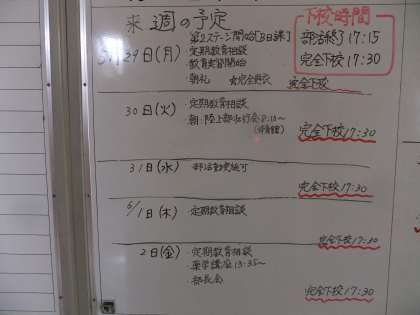 来週の予定
下校時間
部活終了 17:15
完全下校 17:30
5/29日(月) 第2ステージ開始[B日課]
・定期教育相談
・教育実習開始
・朝礼 ☆完全夏衣
完全下校
30日(火) ・定期教育相談
・朝:陸上部壮行会 8:10〜
(体育館)
完全下校 17:30
31日(水) ・部活動実施可
完全下校 17:30
6/1日(木) ・定期教育相談
完全下校 17:30
2日(金) ・定期教育相談
・薬学講座 13:35〜
・部長会
完全下校 17:30